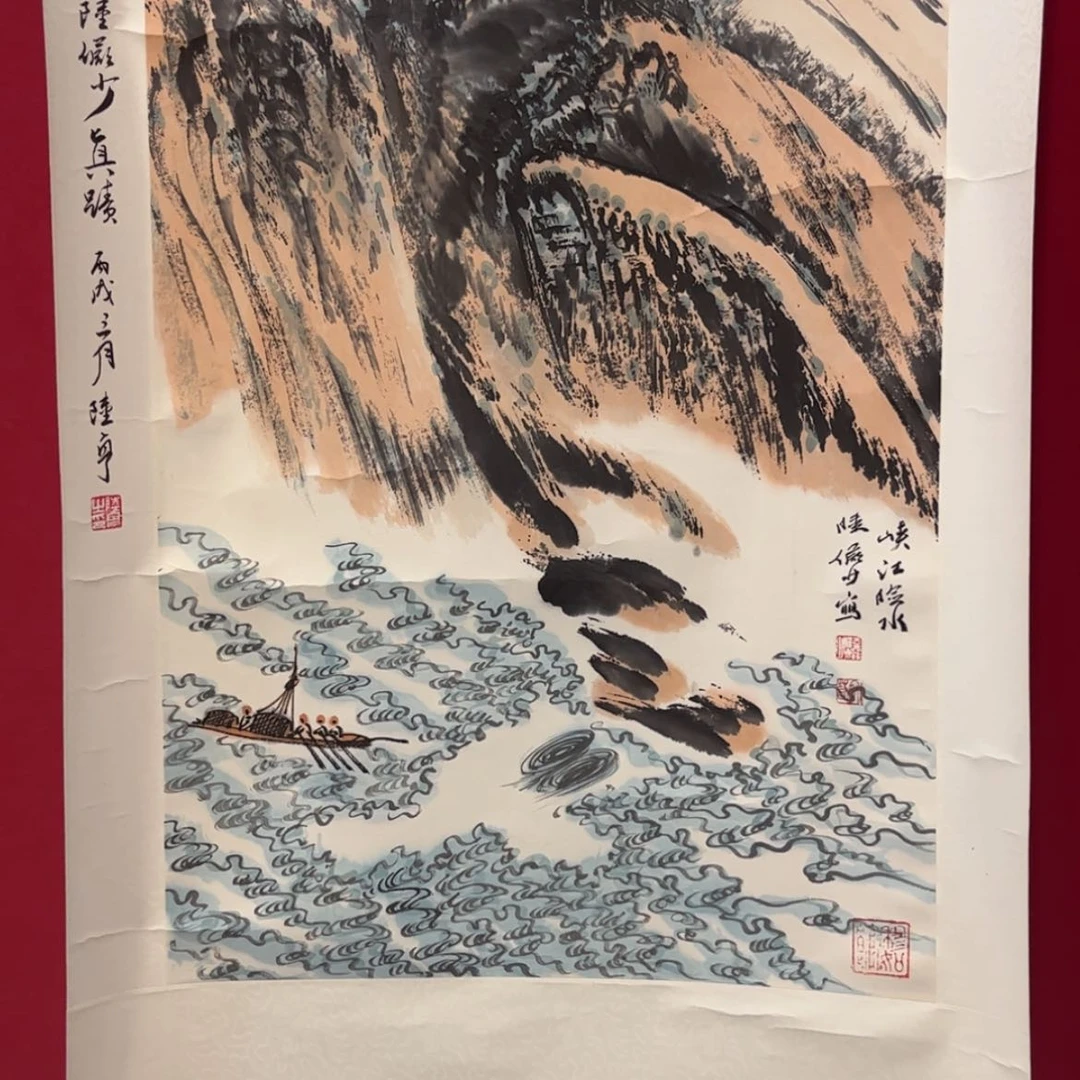 峽江險水
陸儼少寫
陸儼少真蹟 丙戌三月 陸亨